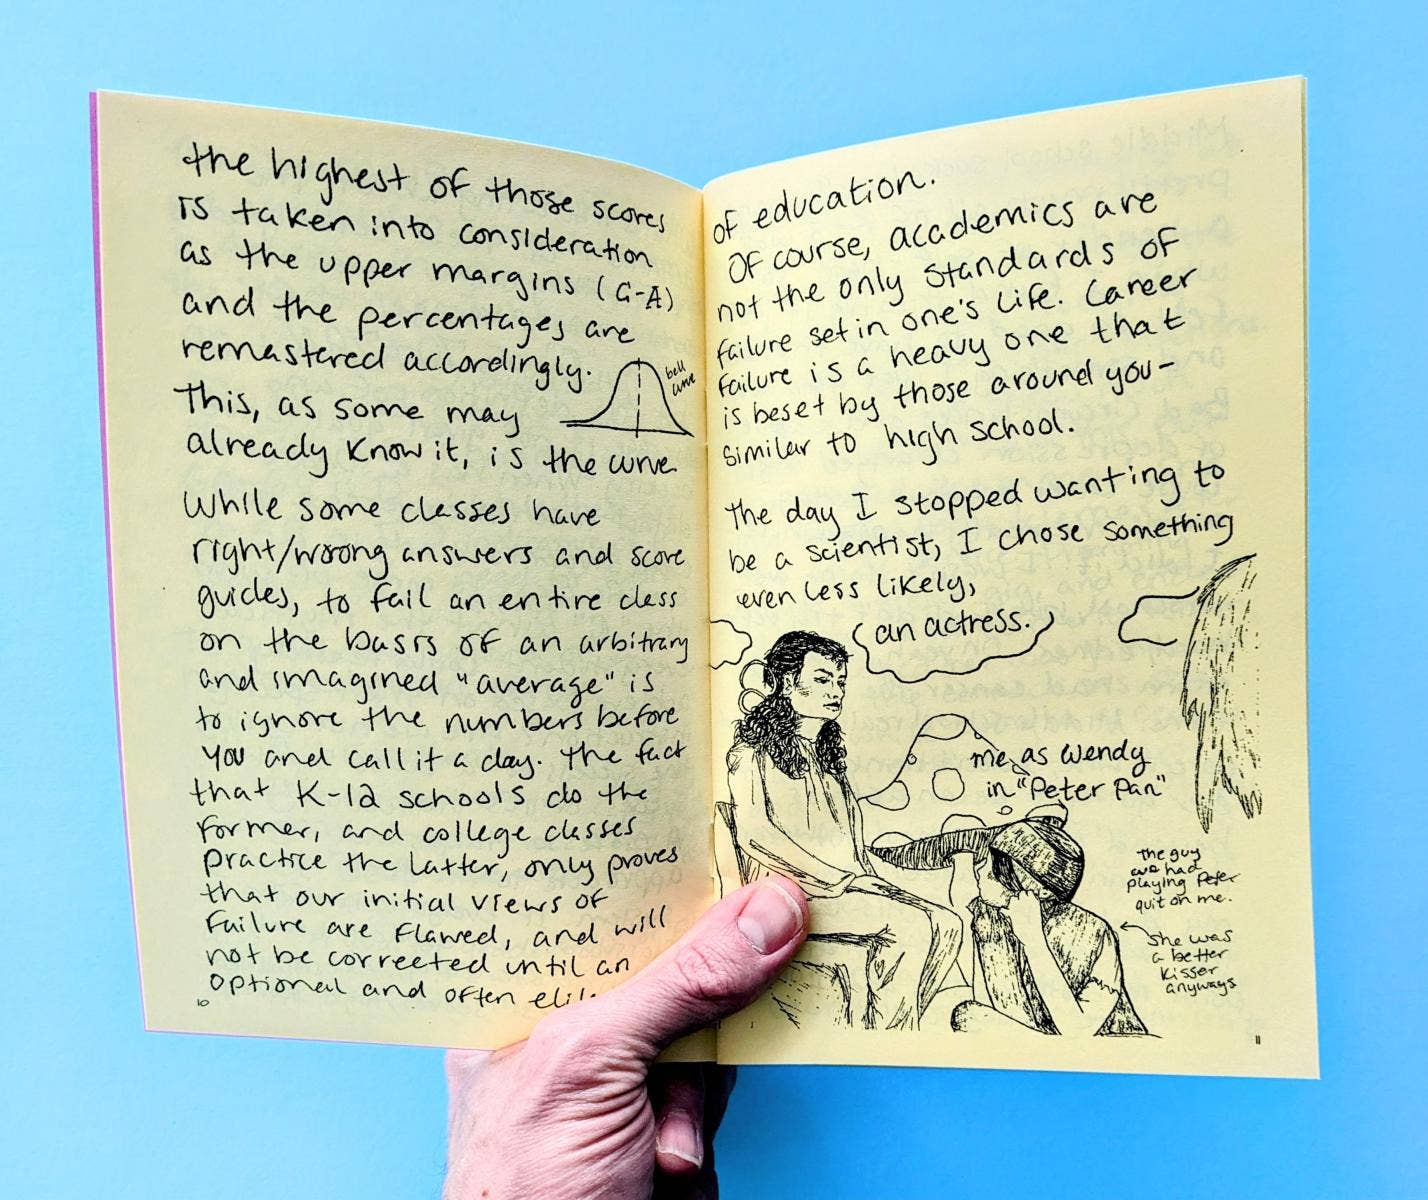 the highest of those scores
is taken into consideration
as the upper margins (C-A)
and the percentages are
remastered accordingly.
bell
curve
This, as some may
already know it, is the curve
While some classes have
right/wrong answers and score
guides, to fail an entire class
on the basis of an arbitrary
and imagined "average" is
to ignore the numbers before
you and call it a day. The fact
that K-12 schools do the
former, and college classes
practice the latter, only proves
that our initial views of
failure are flawed, and will
not be corrected until an
optional and often
10
of education.
Of course, academics are
not the only standards of
failure set in one's life. Career
failure is a heavy one that
is beset by those around you-
similar to high school.
the day I stopped wanting to
be a scientist, I chose something
even less likely,
an actress.
me as Wendy
in "Peter Pan"
the guy
we had
playing Peter
quit on me.
She was
a better
kisser
anyways
11